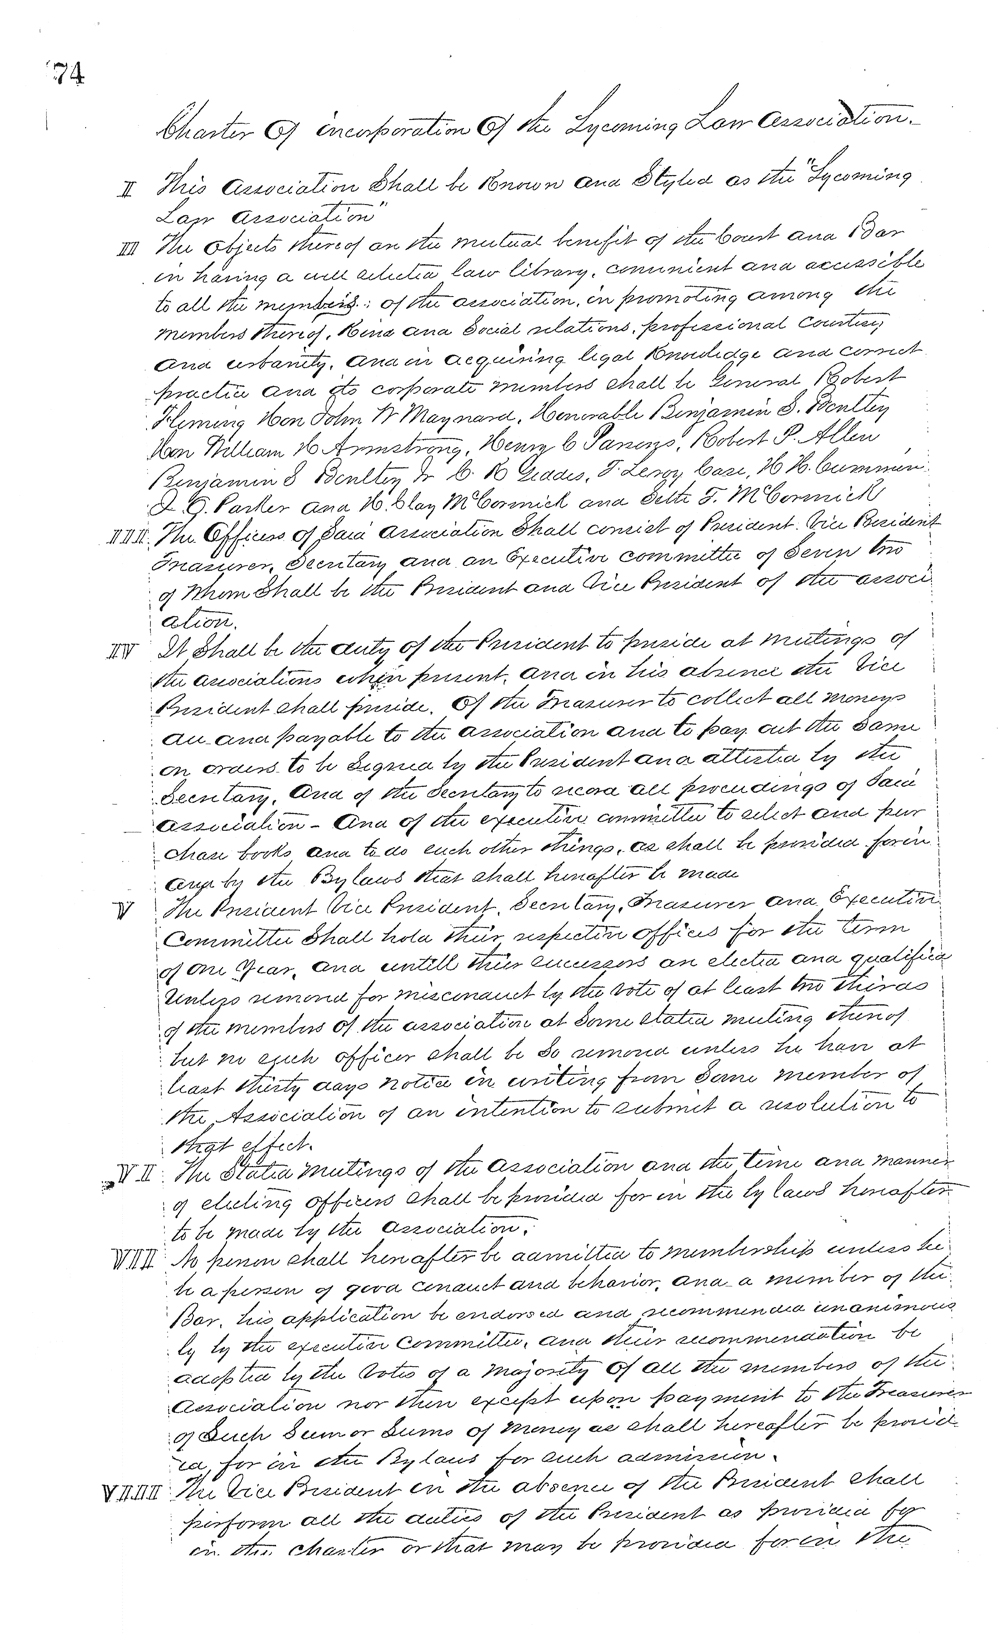 74
Charter Of incorporation Of the Lycoming Law Association.
II This Association Shall be Known and Styled as the "Lycoming
Law Association"
III The Objects thereof are the mutual benefit of the Court and Bar
in having a well selected law library, convenient and accessible
to all the members: of the association, in promoting among the
members thereof, Kind and Social relations, professional Courtesy,
and urbanity, and in acquiring legal Knowledge and correct
practice and its corporate members shall be General Robert
Fleming Hon John W Maynard, Honorable Benjamin S. Bentley
Hon William H Armstrong, Henry C Parsons, Robert P. Allen
Benjamin S Bentley Jr C. K Geddes, F. Leroy Case, H H. Cummin
J. G. Parker and H. Clay McCormick and Seth T. McCormick
IIII. The Officers of Said association Shall consist of President. Vice President
Treasurer, Secretary and an Executive committee of Seven two
of Whom Shall be the President and Vice President of the associ
ation.
IV It Shall be the duty of the President to preside at meetings of
the associations when present, and in his absence the Vice
President shall preside. Of the Treasurer to collect all moneys
due and payable to the association and to pay out the Same
on orders to be Signed by the President and attested by the
Secretary, And of the Secretary to record all proceedings of Said
association - And of the executive committee to select and pur
chase books, and to do such other things, as shall be provided for in
and by the Bylaws that shall hereafter be made
V The President Vice President, Secretary, Treasurer and Executive
Committee Shall hold their respective offices for the term
of one Year, and untill their successors are elected and qualified
Unless removed for misconduct by the vote of at least two thirds
of the members of the association at Some stated meeting thereof
but no such officer shall be So removed unless he have at
least thirty days notice in writing from Some member of
the Association of an intention to submit a resolution to
that effect.
VII The Stated Meetings of the association and the time and manner
of electing officers shall be provided for in the by laws hereafter
to be made by the association.
VIII No person shall hereafter be admitted to membership unless he
be a person of good conduct and behavior, and a member of the
Bar, his application be endorsed and recommended unanimous
ly by the executive committee, and their recommendation be
adopted by the votes of a majority of all the members of the
association nor then except upon payment to the Treasurer
of Such Sum or Sums of money as shall hereafter be provid-
ed for in the Bylaws for such admission.
VIIII The Vice President in the absence of the President shall
perform all the duties of the President as provided for
in the charter or that may be provided for in the